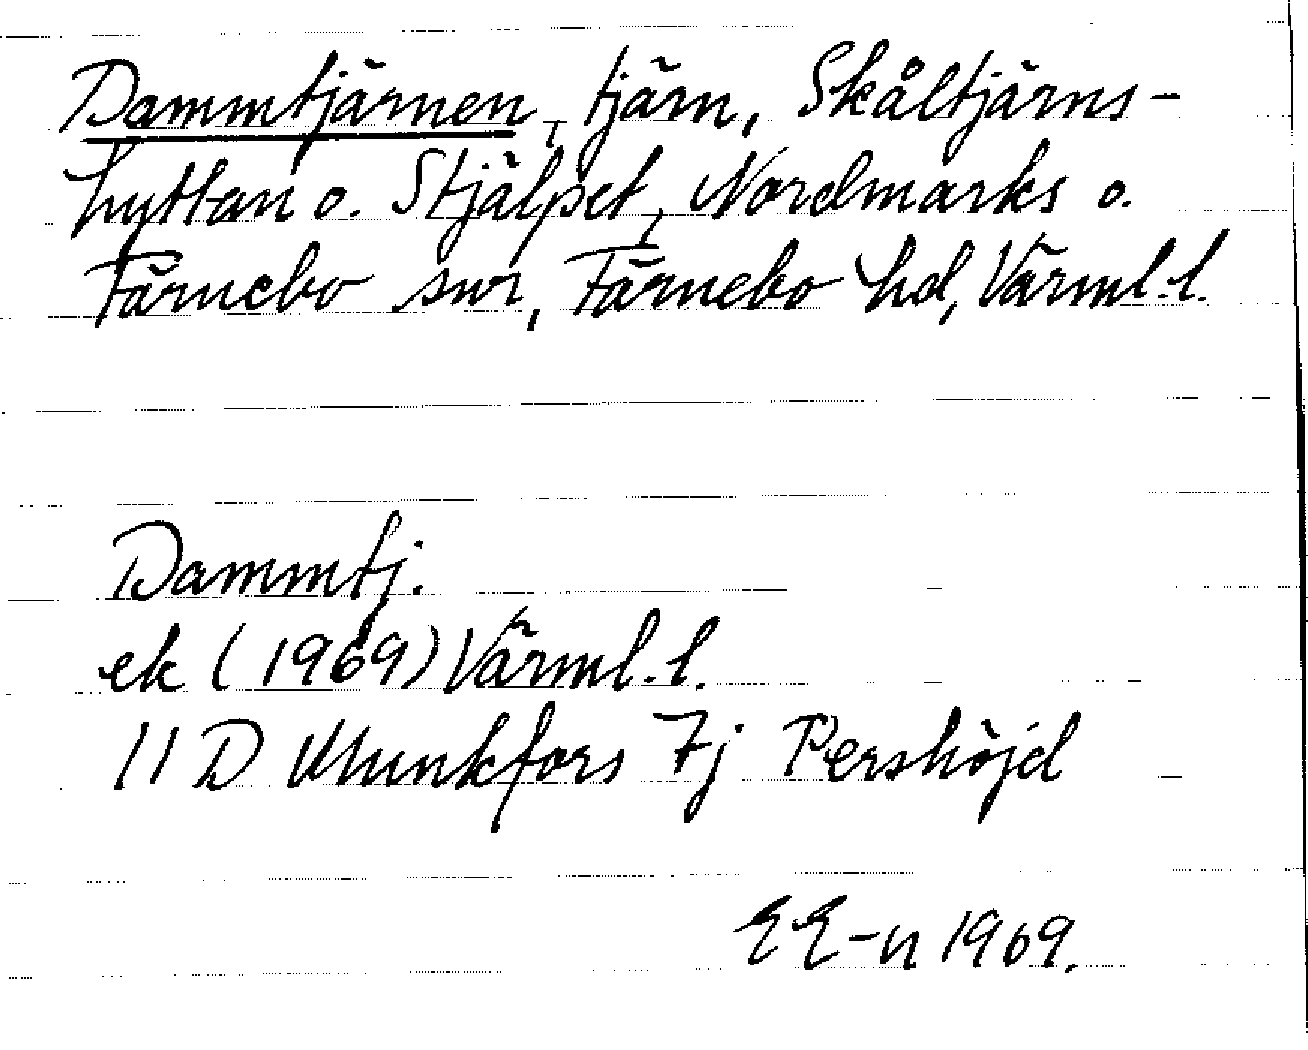 Dammtjärnen, tjärn, Skåltjärns-
hyttan o. Stjälpet, Nordmarks o.
Färnebo snr, Färnebo hd, Värml. l.
Dammtj.
ek (1969) Värml. l.
11 D Munkfors 7j Pershöjd
EE-n 1969.